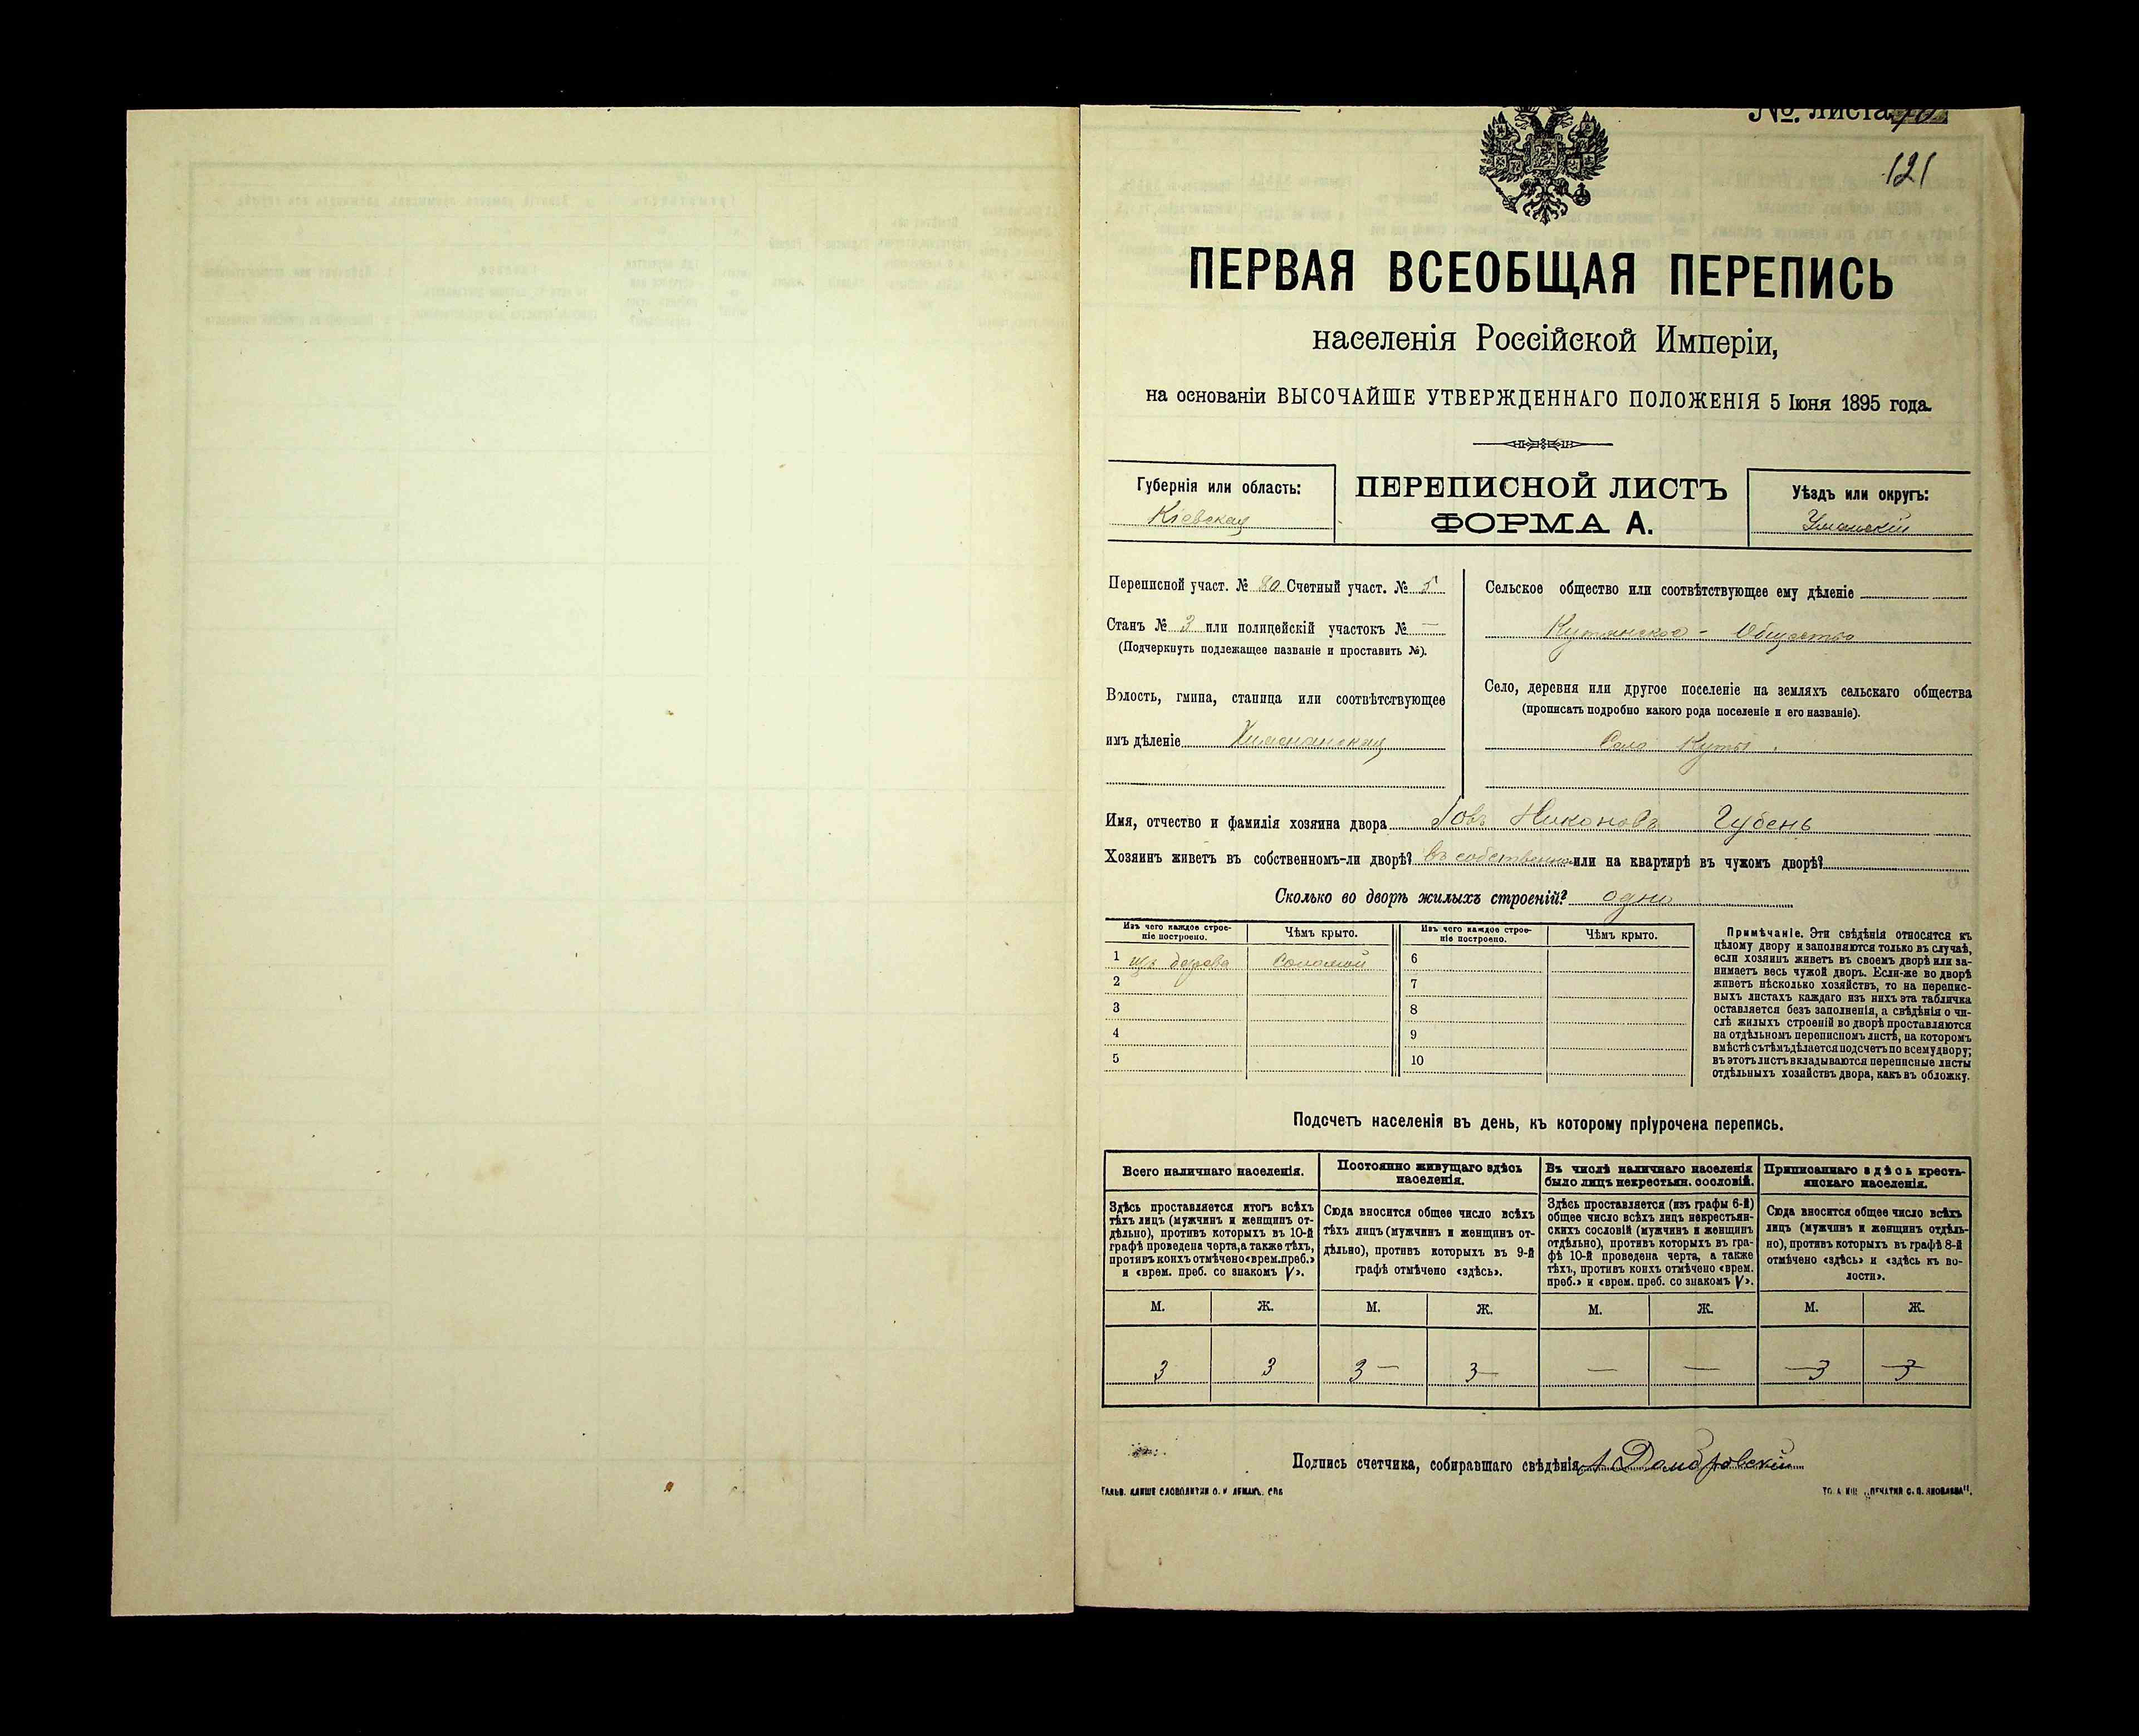 №. листа
121
ПЕРВАЯ ВСЕОБЩАЯ ПЕРЕПИСЬ
населенія Россійской Имперіи,
на основаніи ВЫСОЧАЙШЕ УТВЕРЖДЕННАГО ПОЛОЖЕНІЯ 5 Іюня 1895 года.
Губернія или область:
Кіевская
ПЕРЕПИСНОЙ ЛИСТЪ
ФОРМА А.
Уѣздъ или округъ:
Уманскій
Переписной участ. № 80 Счетный участ. № 5
Станъ № 3 или полицейскій участокъ № —
(Подчеркнуть подлежащее названіе и проставить №).
Волость, гмина, станица или соотвѣтствующее
имъ дѣленіе
Сельское общество или соотвѣтствующее ему дѣленіе
Кутянское - Общество
Село, деревня или другое поселеніе на земляхъ сельскаго общества
(прописать подробно какого рода поселеніе и его названіе).
Село Куты.
Имя, отчество и фамилія хозяина двора Іовъ Никоновъ Губень
Хозяинъ живетъ въ собственномъ-ли дворѣ? въ собственномъ или на квартирѣ въ чужомъ дворѣ?
Сколько во дворѣ жилыхъ строеній? одно
Изъ чего каждое строе-
ніе построено.
Чѣмъ крыто.
Изъ чего каждое строе-
ніе построено.
Чѣмъ крыто.
1 изъ дерева Соломой 6
2 7
3 8
4 9
5 10
Примѣчаніе. Эти свѣдѣнія относятся къ
цѣлому двору и заполняются только въ случаѣ,
если хозяинъ живетъ въ своемъ дворѣ или за-
нимаетъ весь чужой дворъ. Если-же во дворѣ
живетъ нѣсколько хозяйствъ, то на перепис-
ныхъ листахъ каждаго изъ нихъ эта табличка
оставляется безъ заполненія, а свѣдѣнія о чи-
слѣ жилыхъ строеній во дворѣ проставляются
на отдѣльномъ переписномъ листѣ, на которомъ
вмѣстѣ съ тѣмъ дѣлается подсчетъ по всему двору;
въ этотъ листъ вкладываются переписные листы
отдѣльныхъ хозяйствъ двора, какъ въ обложку.
Подсчетъ населенія въ день, къ которому пріурочена перепись.
Всего наличнаго населенія.
Постоянно живущаго здѣсь
населенія.
Въ числѣ наличнаго населенія
было лицъ некрестьян. сословій.
Приписаннаго здѣсь кресть-
янскаго населенія.
Здѣсь проставляется итогъ всѣхъ
тѣхъ лицъ (мужчинъ и женщинъ от-
дѣльно), противъ которыхъ въ 10-й
графѣ проведена черта, а также тѣхъ,
противъ коихъ отмѣчено «врем. преб.»
и «врем. преб. со знакомъ V».
Сюда вносится общее число всѣхъ
тѣхъ лицъ (мужчинъ и женщинъ от-
дѣльно), противъ которыхъ въ 9-й
графѣ отмѣчено «здѣсь».
Здѣсь проставляется (изъ графы 6-й)
общее число всѣхъ лицъ некрестьян-
скихъ сословій (мужчинъ и женщинъ
отдѣльно), противъ которыхъ въ гра-
фѣ 10-й проведена черта, а также
тѣхъ, противъ коихъ отмѣчено «врем.
преб.» и «врем. преб. со знакомъ V».
Сюда вносится общее число всѣхъ
лицъ (мужчинъ и женщинъ отдѣль-
но), противъ которыхъ въ графѣ 8-й
отмѣчено «здѣсь» и «здѣсь къ во-
лости».
М. Ж. М. Ж. М. Ж. М. Ж.
3 3 3 — 3 — — — 3 3
Подпись счетчика, собиравшаго свѣдѣнія А Домбровскій
ГАЛЬВ. КЛИШЕ СЛОВОЛИТНИ О. И ЛЕМАНЪ. СПБ
„ПЕЧАТНЯ С. П. ЯКОВЛЕВА".